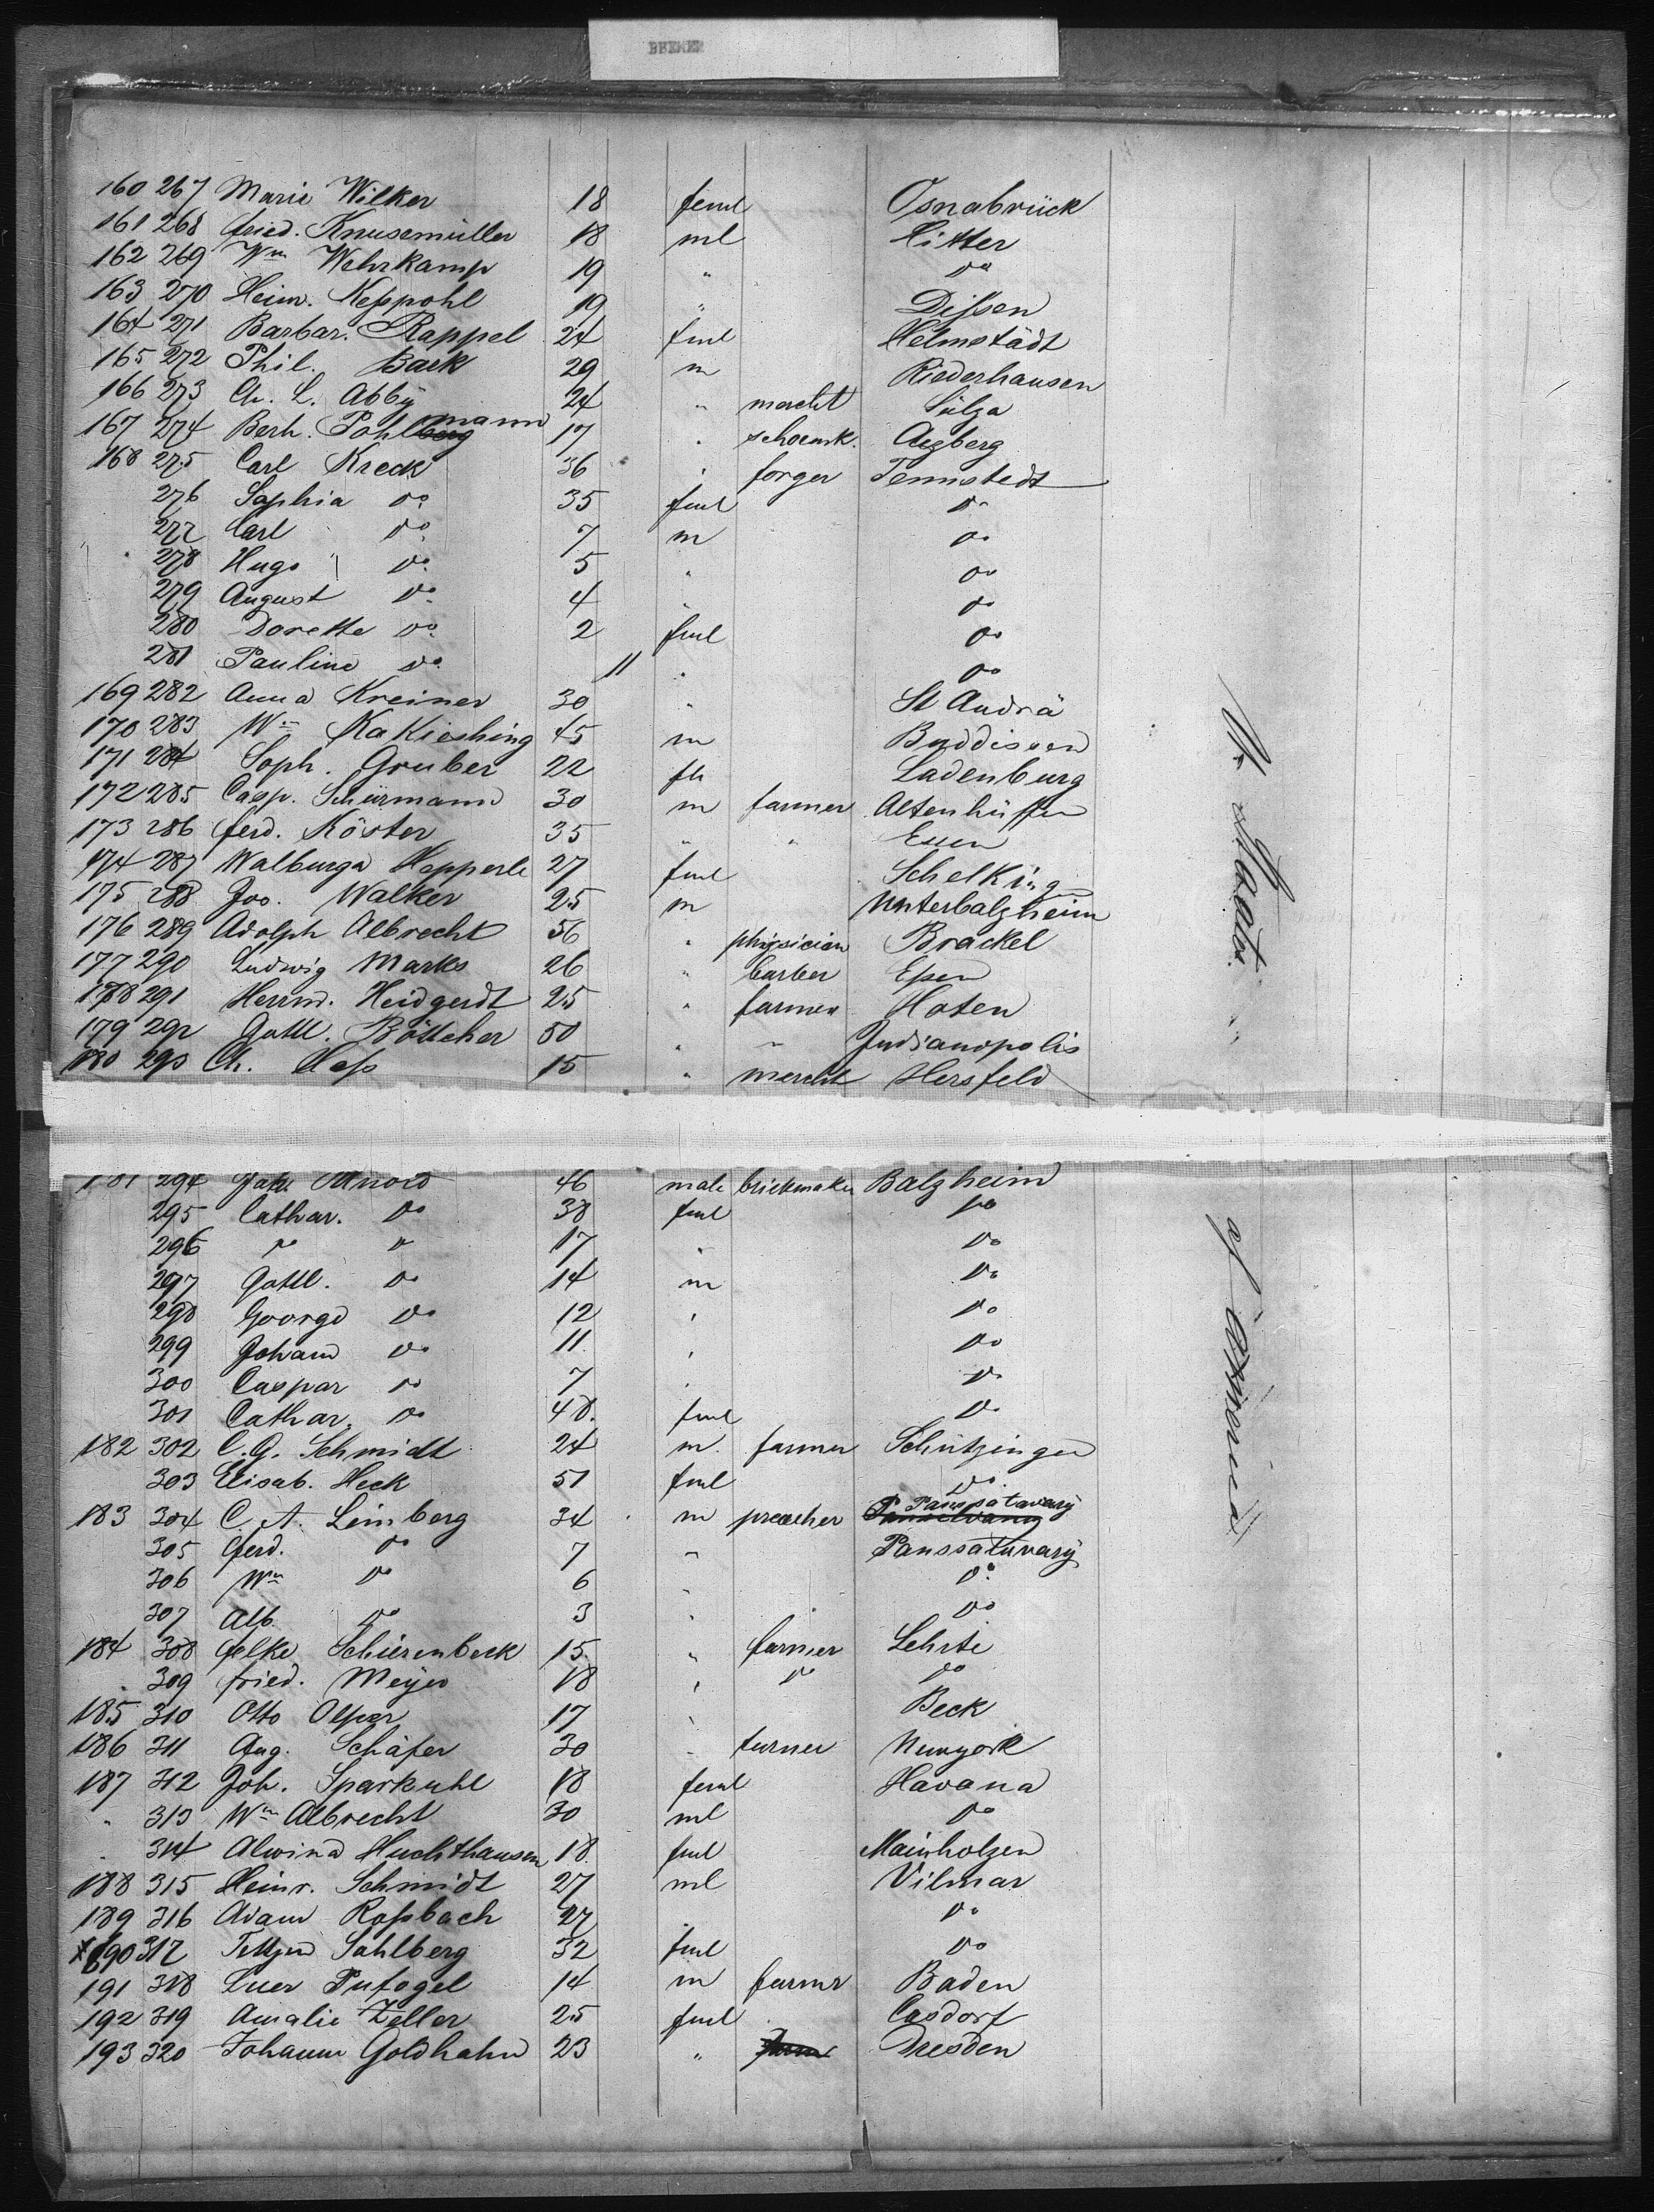 BREMEN
160 267 Marie Wilker 18 feml Osnabrück
161 268 Fried. Knusemüller 18 ml Hitter
162 269 Wm Wehrkamp 19 " do
163 270 Heinr. Keßpohl 19 " Dißen
164 271 Barbar. Rappel 24 fml Helmstädt
165 272 Phil. Back 29 m Riederhausen
166 273 Ch. L. Abbÿ 24 " mercht Sülza
167 274 Berh. Pohlmann 17 " schoemk. Augberg
168 275 Carl Kreck 36 " forger Tennstedt
276 Sophia do 35 fml do
277 Carl do 7 m do
278 Hugo do 5 " do
279 August do 4 " do
280 Dorette do 2 fml do
281 Pauline do 11 " do
169 282 Anna Kreiner 30 " St Andrä
170 283 Wm KaKieshing 45 m Buddissen
171 284 Soph. Gruber 22 fl Ladenburg
172 285 Casp. Schürmann 30 m farmer Altenhüffen
173 286 Ferd. Köster 35 " " Essen
174 287 Walburga Hepperle 27 fml Schelking
175 288 Jos. Walker 25 m Unterbalzheim
176 289 Adolph Albrecht 56 " physician Brackel
177 290 Ludwig Marks 26 " barber Eßen
178 291 Herrm. Heidgerdt 25 " farmer Hoten
179 292 Gottl. Böttcher 50 " " Indianopolis
180 293 Ch. Heß 15 " mercht Hersfeld
181 294 Joh. Arnold 46 male brickmaker Balzheim
295 Cathar. do 38 fml do
296 do do 17 " do
297 Gottl. do 14 m do
298 George do 12 " do
299 Johann do 11 " do
300 Caspar do 7 " do
301 Cathar. do 48. fml do
182 302 C. G. Schmidt 24 m. farmer Schützingen
303 Elisab. Heck 51 fml do
183 304 C. A. Leimberg 34 m preacher Panssatuvarÿ
305 Ferd. do 7 " Panssatuvarÿ
306 Wm do 6 " do
307 Alb. do 3 " do
184 308 Gelke Schierenbeck 15 " farmer Lehrte
" 309 Fried. Meÿer 18 " do do
185 310 Otto Olper 17 " Beck
186 311 Aug. Schäfer 30 " turner Newyork
187 312 Joh. Sparkuhl 18 feml Havana
" 313 Wm Albrecht 30 ml do
" 314 Alwina Huchthausen 18 fml Mainholzen
188 315 Heinr. Schmidt 27 ml Vilmar
189 316 Adam Roßbach 27 " do
x 190 317 Sahlberg 32 fml do
191 318 Luer Pufogel 14 m farmr Baden
192 319 Amalie Zeller 25 fml Casdorf
193 320 Johanne Goldhahn 23 " Dresden
U. States
of America